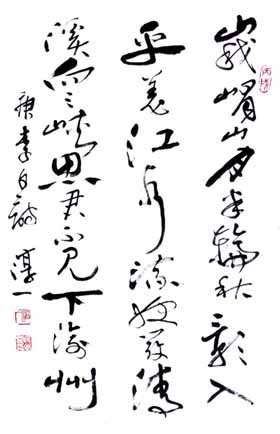 峨嵋山月半輪秋影入
平羌江水流夜發清
溪向三峽思君不見下渝州
李白詩 淳一